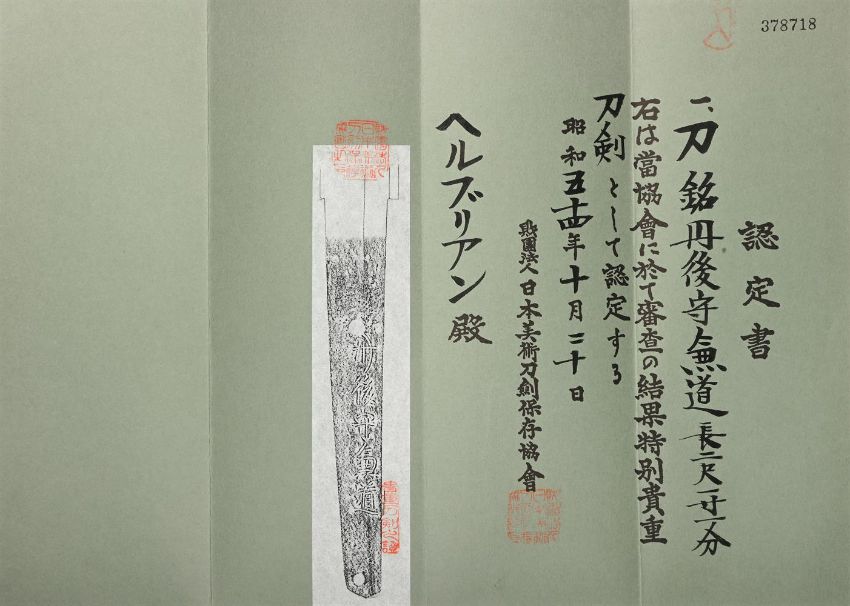 378718
認定書
一、刀 銘丹後守兼道 長二尺一寸一分
右は當協會に於て審査の結果特別貴重
刀剣として認定する
昭和五十四年十月二十日
財團法人日本美術刀劍保存協會
ヘルブリアン殿
丹後守兼道